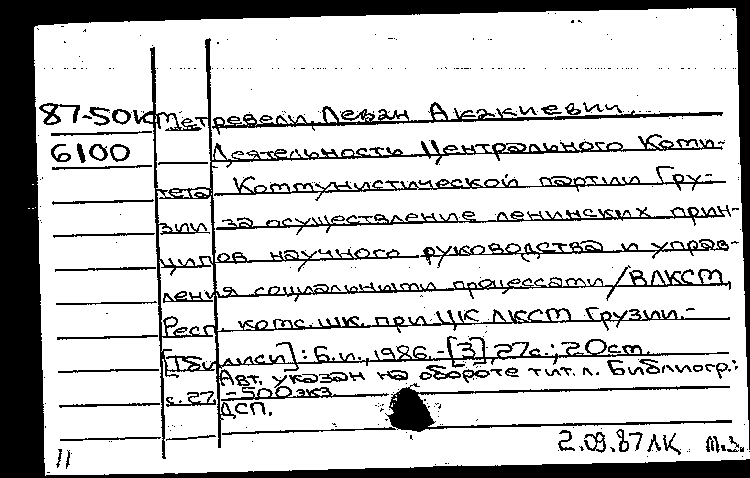 87-50К Метревели, Леван Акакиевич.
6100 Деятельности Центрального Коми-
тета Коммунистической партии Гру-
зии за осуществление ленинских прин-
ципов научного руководства и управ-
ления социальными процессами / ВЛКСМ,
Респ. комс. шк. при ЦК ЛКСМ Грузии.-
[Тбилиси]: Б.и., 1986.-[3], 27с.; 20см.
Авт. указан на обороте тит. л. Библиогр.:
с. 27. -500 экз.
ДСП.
2.09.87 ЛК т.з.
11